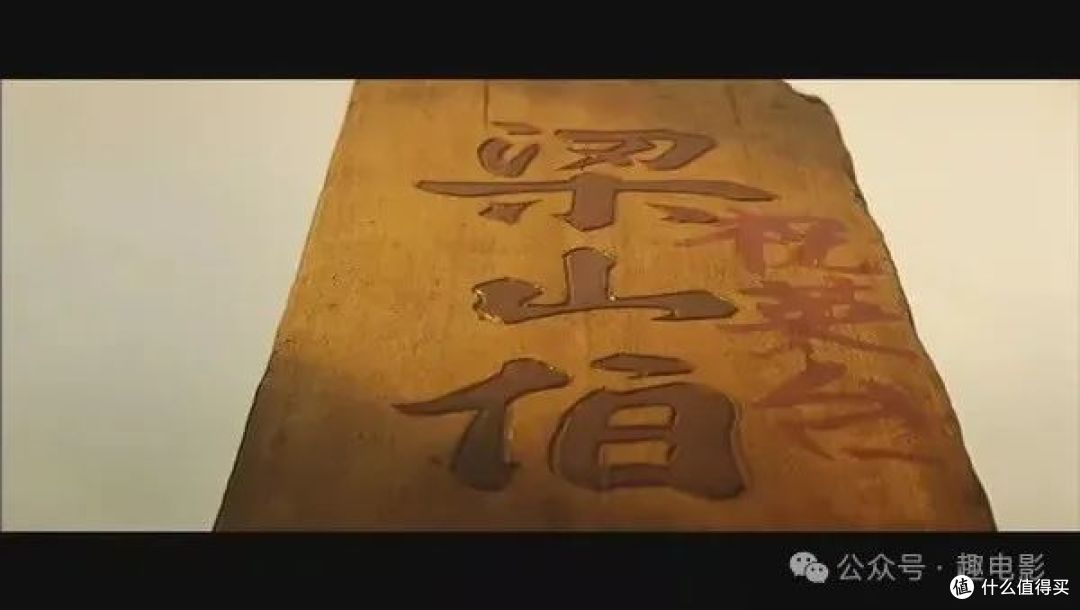 梁山伯
祝英台
公众号 · 趣电影
值 什么值得买